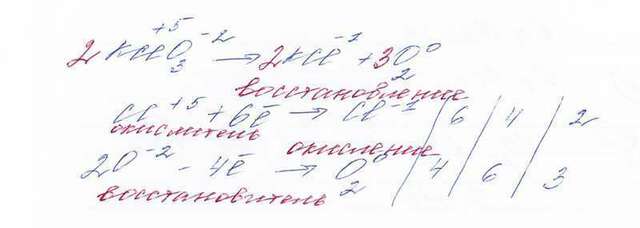 2KClO₃⁺⁵ ⁻² → 2KCl⁻¹ + 3O₂⁰
восстановление
Cl⁺⁵ + 6ē → Cl⁻¹ | 6 | 4 | 2
окислитель
окисление
2O⁻² - 4ē → O₂⁰ | 4 | 6 | 3
восстановитель